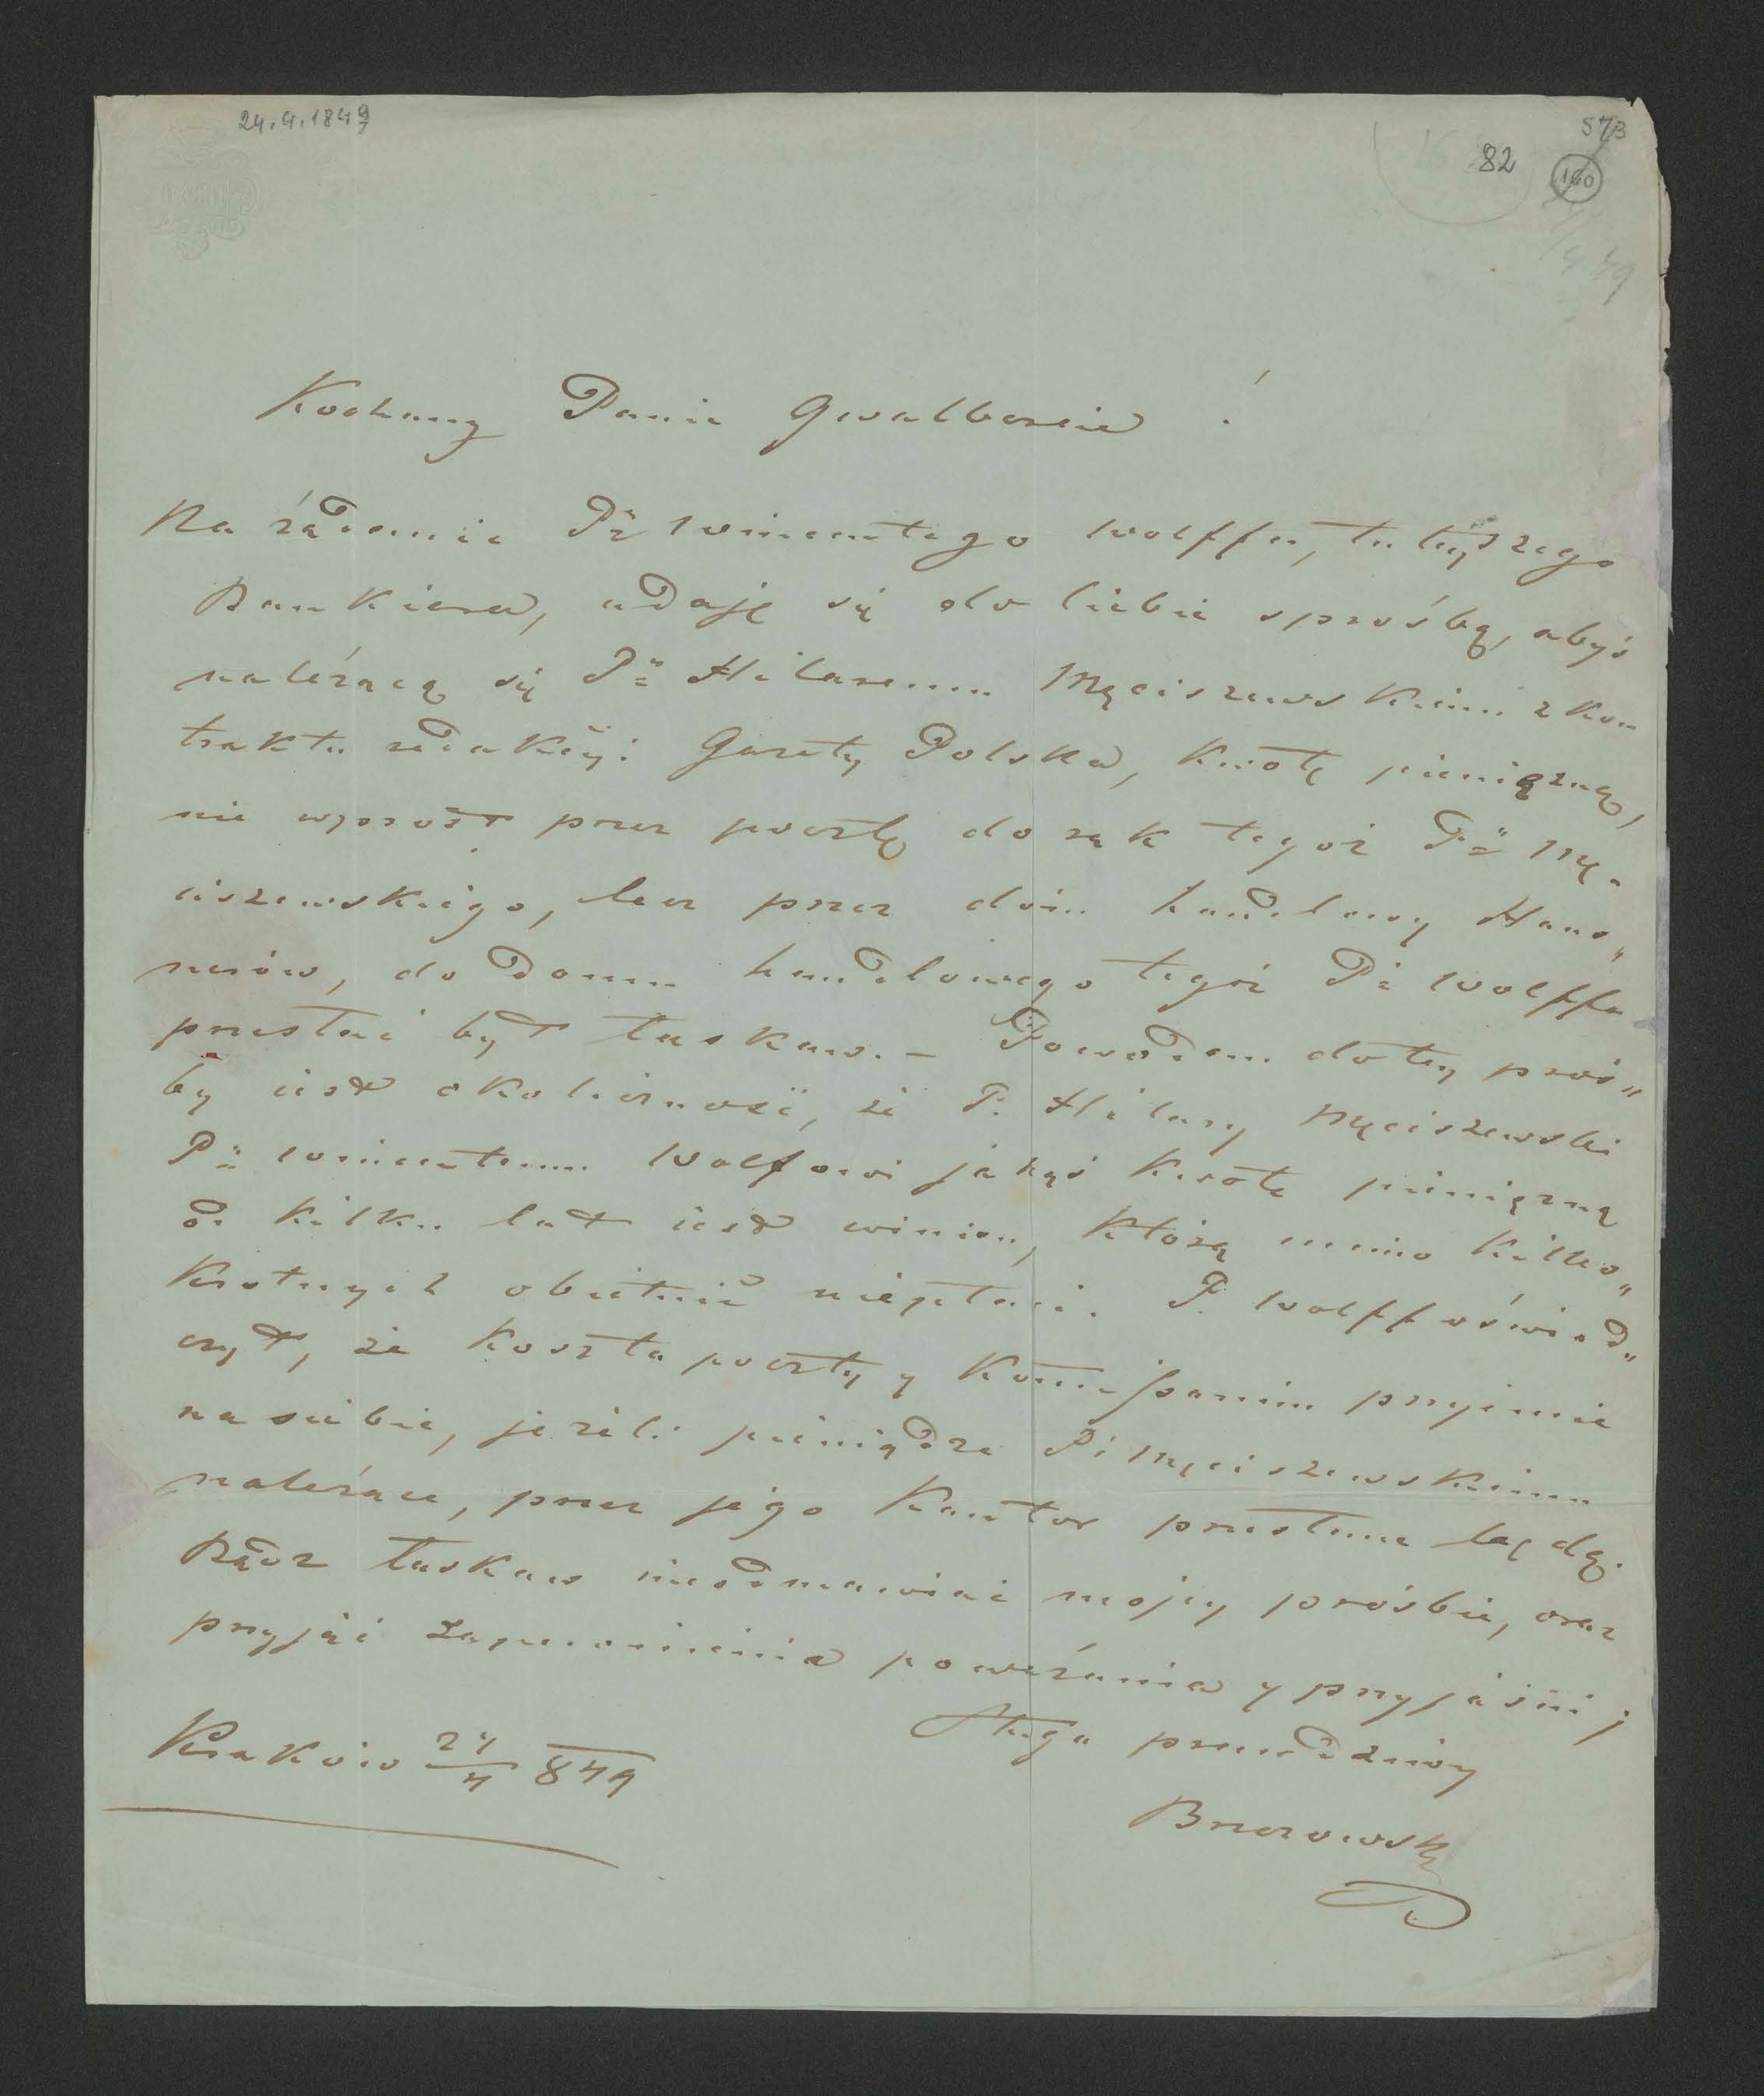 24.4.1849
573
82
160
Kochany Panie Gwalbercie !
Na żądanie Pa Wincentego Wolffa, tutejszego
Bankiera, udaję się do Ciebie s prośbą, abyś
należącą się Pu Hilaremu Męciszewskiemu z kon
traktu redakcyi Gazety Polska, kwotę pieniężną,
nie wprost przez pocztę do rąk tegoż Pa Mę-
ciszewskiego, lecz przez dom handlowy Haus„
nerów, do Domu handlowego tegoż Pa Wolffa
przesłać był łaskaw. – Powodem do tey proś„
by iest okoliczność, że P. Hilary Męciszewski
Pu Wincentemu Wolfowi jakąś kwotę pieniężną
od kilku lat iest winien, którą mimo kilko„
krotnych obietnic niepłaci. P. Wolff oświad„
czył, że koszta poczty y komissanim przyimie
na siebie, jeżeli pieniądze Pu Męciszewskiemu
należące, przez jego Kantor przesłane będą.
Bądz łaskaw nieodmawiać mojey prośbie, oraz
przyjąć zapewnienia poważania y przyjaźni ;
Sługa prawdziwy
Kraków 24/4 849
Brzozowski